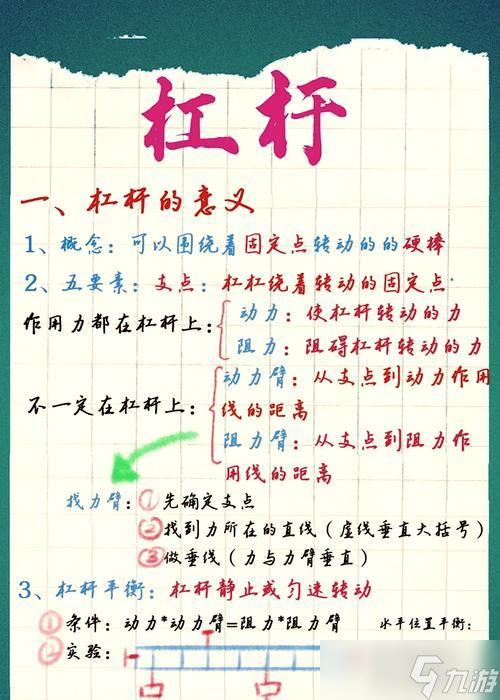 杠杆
一、杠杆的意义
1、概念：可以围绕着固定点转动的的硬棒
2、五要素：支点：杠杠绕着转动的固定点.
作用力都在杠杆上：
动力：使杠杆转动的力
阻力：阻碍杠杆转动的力
不一定在杠杆上：
动力臂：从支点到动力作用
线的距离
阻力臂：从支点到阻力作
用线的距离
找力臂：①先确定支点
②找到力所在的直线（虚线垂直大括号）
③做垂线（力与力臂垂直）
3、杠杆平衡：杠杆静止或匀速转动
①条件：动力*动力臂=阻力*阻力臂 水平位置平衡：
②实验：
九游